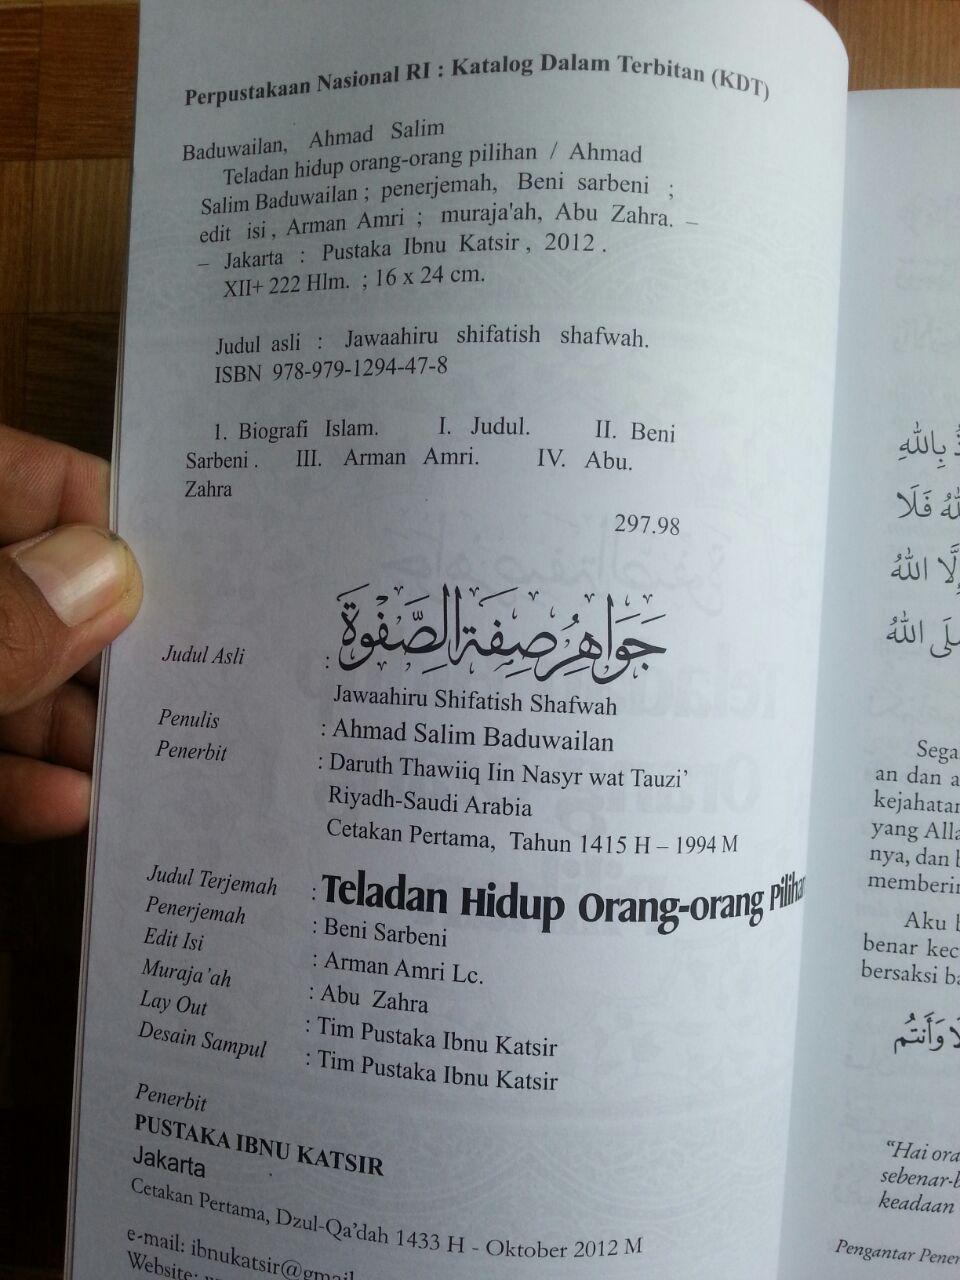 Perpustakaan Nasional RI : Katalog Dalam Terbitan (KDT)
Baduwailan, Ahmad Salim
Teladan hidup orang-orang pilihan / Ahmad
Salim Baduwailan ; penerjemah, Beni sarbeni ;
edit isi , Arman Amri ; muraja'ah, Abu Zahra. –
– Jakarta : Pustaka Ibnu Katsir , 2012 .
XII+ 222 Hlm. ; 16 x 24 cm.
Judul asli : Jawaahiru shifatish shafwah.
ISBN 978-979-1294-47-8
1. Biografi Islam. I. Judul. II. Beni
Sarbeni . III. Arman Amri. IV. Abu.
Zahra
297.98
Judul Asli : جَوَاهِرُ صِفَةِ الصَّفْوَةِ
Jawaahiru Shifatish Shafwah
Penulis : Ahmad Salim Baduwailan
Penerbit : Daruth Thawiiq Iin Nasyr wat Tauzi’
Riyadh-Saudi Arabia
Cetakan Pertama, Tahun 1415 H – 1994 M
Judul Terjemah : Teladan Hidup Orang-orang Pilihan
Penerjemah : Beni Sarbeni
Edit Isi : Arman Amri Lc.
Muraja’ah : Abu Zahra
Lay Out : Tim Pustaka Ibnu Katsir
Desain Sampul : Tim Pustaka Ibnu Katsir
Penerbit
PUSTAKA IBNU KATSIR
Jakarta
Cetakan Pertama, Dzul-Qa’dah 1433 H - Oktober 2012 M
e-mail: ibnukatsir@gmail
Website:
بِاللهِ
فَلَا
إِلَّا اللهُ
اللهُ
Sega
an dan a
kejahatan
yang Alla
nya, dan b
memberin
Aku b
benar kec
bersaksi ba
وَأَنتُم
“Hai ora
sebenar-b
keadaan
Pengantar Pener